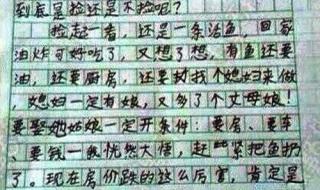 到底是捡还是不捡呢?
捡起一看,还是一条活鱼,回家
油炸可好吃了,又想了想,有鱼还要
油,还要厨房,还要找个媳妇来做
,媳妇一定有娘,又多了个丈母娘!
要娶她姑娘一定开条件:要房、要车
、要钱—我恍然大悟,赶紧把鱼扔
了。现在房价跌的这么厉害,肯定是